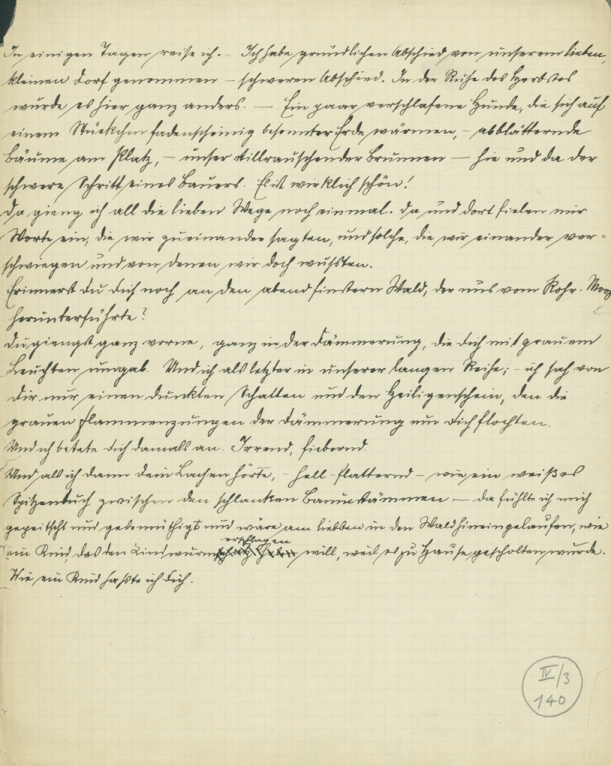 In einigen Tagen reise ich. – Ich habe gründlichen Abschied von unserem lieben,
kleinen Dorf genommen – schweren Abschied. In der Ruhe des Herbstes
wurde es hier ganz anders. – Ein paar verschlafene Hunde, die sich auf
einem Stückchen fadenscheinig besonnter Erde wärmen, – abblätternde
Bäume am Platz, – unser stillrauschender Brunnen – hie und da der
schwere Schritt eines Bauers. Es ist wirklich schön!
Da gieng ich all die lieben Wege noch einmal. Da und dort fielen mir
Worte ein, die wir zueinander sagten, und solche, die wir einander ver-
schwiegen und von denen wir doch wußten.
Erinnerst du dich noch an den abendfinstern Wald, der uns vom Rohr. Moos
herunterführte?
Du giengst ganz vorne, ganz in der Dämmerung, die dich mit grauem
Leuchten umgab. Und ich als letzter in unserer langen Reihe; – ich sah von
dir nur einen dunklen Schatten und den Heiligenschein, den die
grauen Flammenzungen der Dämmerung um dich flochten.
Und ich betete dich damals an. Irrend, fiebernd.
Und als ich dann dein Lachen hörte, – hell flatternd – wie ein weißes
Spitzentuch zwischen den schlanken Baumstämmen – da fühlte ich mich
gepeitscht und gedemüthigt und wäre am liebsten in den Wald hineingelaufen, wie
erschlagen
ein Kind, das den Lindwurm will, weil es zu Hause gescholten wurde.
Wie ein Kind haßte ich dich.
IV/3
140